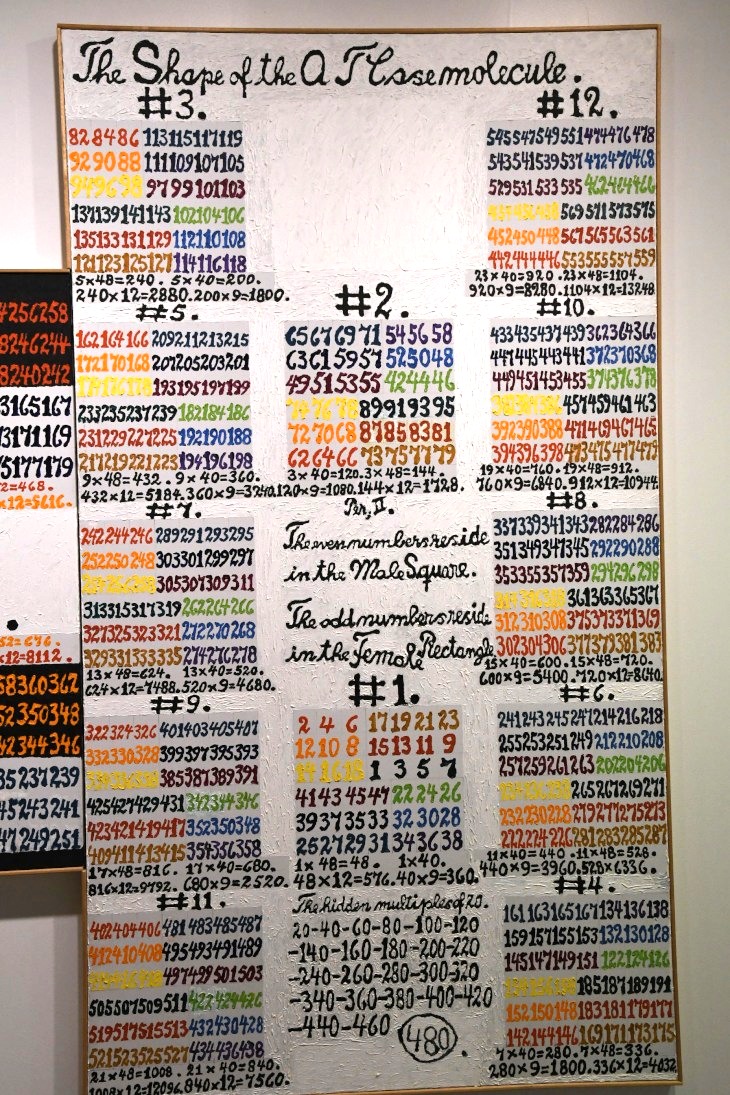 The Shape of the QTCsse molecule.
#3.
82 84 86 113 115 117 119
92 90 88 111 109 107 105
94 96 98 97 99 101 103
137 139 141 143 102 104 106
135 133 131 129 112 110 108
121 123 125 127 114 116 118
5×48=240. 5×40=200.
240×12=2880. 200×9=1800.
#12.
545 547 549 551 474 476 478
543 541 539 537 472 470 468
529 531 533 535 462 464 466
454 456 458 569 571 573 575
452 450 448 567 565 563 561
442 444 446 553 555 557 559
23×40=920. 23×48=1104.
920×9=8280. 1104×12=13248
#5.
162 164 166 209 211 213 215
172 170 168 207 205 203 201
174 176 178 193 195 197 199
233 235 237 239 182 184 186
231 229 227 225 192 190 188
217 219 221 223 194 196 198
9×48=432. 9×40=360.
432×12=5184. 360×9=3240.
#2.
65 67 69 71 54 56 58
63 61 59 57 52 50 48
49 51 53 55 42 44 46
74 76 78 89 91 93 95
72 70 68 87 85 83 81
62 64 66 73 75 77 79
3×40=120. 3×48=144.
120×9=1080. 144×12=1728.
#10.
433 435 437 439 362 364 366
447 445 443 441 372 370 368
449 451 453 455 374 376 378
457 459 461 463
392 390 388 471 469 467 465
394 396 398 473 475 477 479
19×40=760. 19×48=912.
760×9=6840. 912×12=10944.
#7.
242 244 246 289 291 293 295
252 250 248 303 301 299 297
254 256 258 305 307 309 311
313 315 317 319 262 264 266
327 325 323 321 272 270 268
329 331 333 335 274 276 278
13×48=624. 13×40=520.
624×12=7488. 520×9=4680.
Per, II.
The even numbers reside
in the Male Square.
The odd numbers reside
in the Female Rectangle
#8.
337 339 341 343 282 284 286
351 349 347 345 292 290 288
353 355 357 359 294 296 298
361 363 365 367
312 310 308 375 373 371 369
302 304 306 377 379 381 383
15×40=600. 15×48=720.
600×9=5400. 720×12=8640.
#9.
322 324 326 401 403 405 407
332 330 328 399 397 395 393
334 336 338 385 387 389 391
425 427 429 431 342 344 346
423 421 419 417 352 350 348
409 411 413 415 354 356 358
17×48=816. 17×40=680.
816×12=9792. 680×9=2520.
#1.
2 4 6 17 19 21 23
12 10 8 15 13 11 9
14 16 18 1 3 5 7
41 43 45 47 22 24 26
39 37 35 33 32 30 28
25 27 29 31 34 36 38
1×48=48. 1×40.
48×12=576. 40×9=360.
#6.
241 243 245 247 214 216 218
255 253 251 249 212 210 208
257 259 261 263 202 204 206
234 236 238 265 267 269 271
232 230 228 279 277 275 273
222 224 226 281 283 285 287
11×40=440. 11×48=528.
440×9=3960. 528×6336.
#11.
402 404 406 481 483 485 487
412 410 408 495 493 491 489
414 416 418 497 499 501 503
505 507 509 511 422 424 426
519 517 515 513 432 430 428
521 523 525 527 434 436 438
21×48=1008. 21×40=840.
1008×12=12096. 840×12=7560.
The hidden multiples of 20.
20-40-60-80-100-120
-140-160-180-200-220
-240-260-280-300-320
-340-360-380-400-420
-440-460 480.
#4.
161 163 165 167 134 136 138
159 157 155 153 132 130 128
145 147 149 151 122 124 126
154 156 158 185 187 189 191
152 150 148 183 181 179 177
142 144 146 169 171 173 175
7×40=280. 7×48=336.
280×9=1800. 336×12=4032
4256258
8246244
8240242
3165167
3171169
5177179
2=468.
×12=5616.
52=676.
×12=8112.
58360362
52350348
42344346
35237239
45243241
47249251